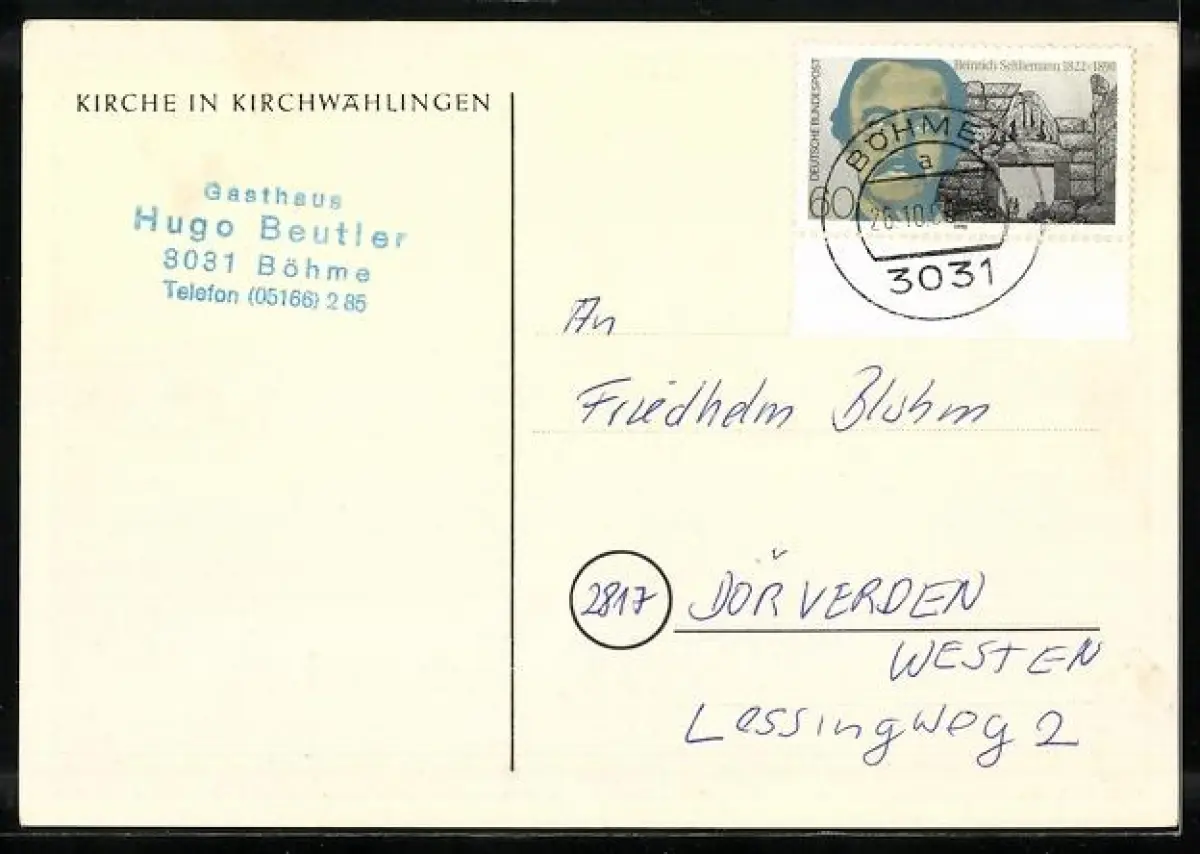 KIRCHE IN KIRCHWAHLINGEN
Gasthaus
Hugo Beutler
3031 Böhme
Telefon (05166) 2 85
Heinrich Schliemann 1822-1890
DEUTSCHE BUNDESPOST
60
BÖHME
a
3031
An
Friedhelm Bluhm
2817 DÖRVERDEN
WESTEN
Lessingweg 2